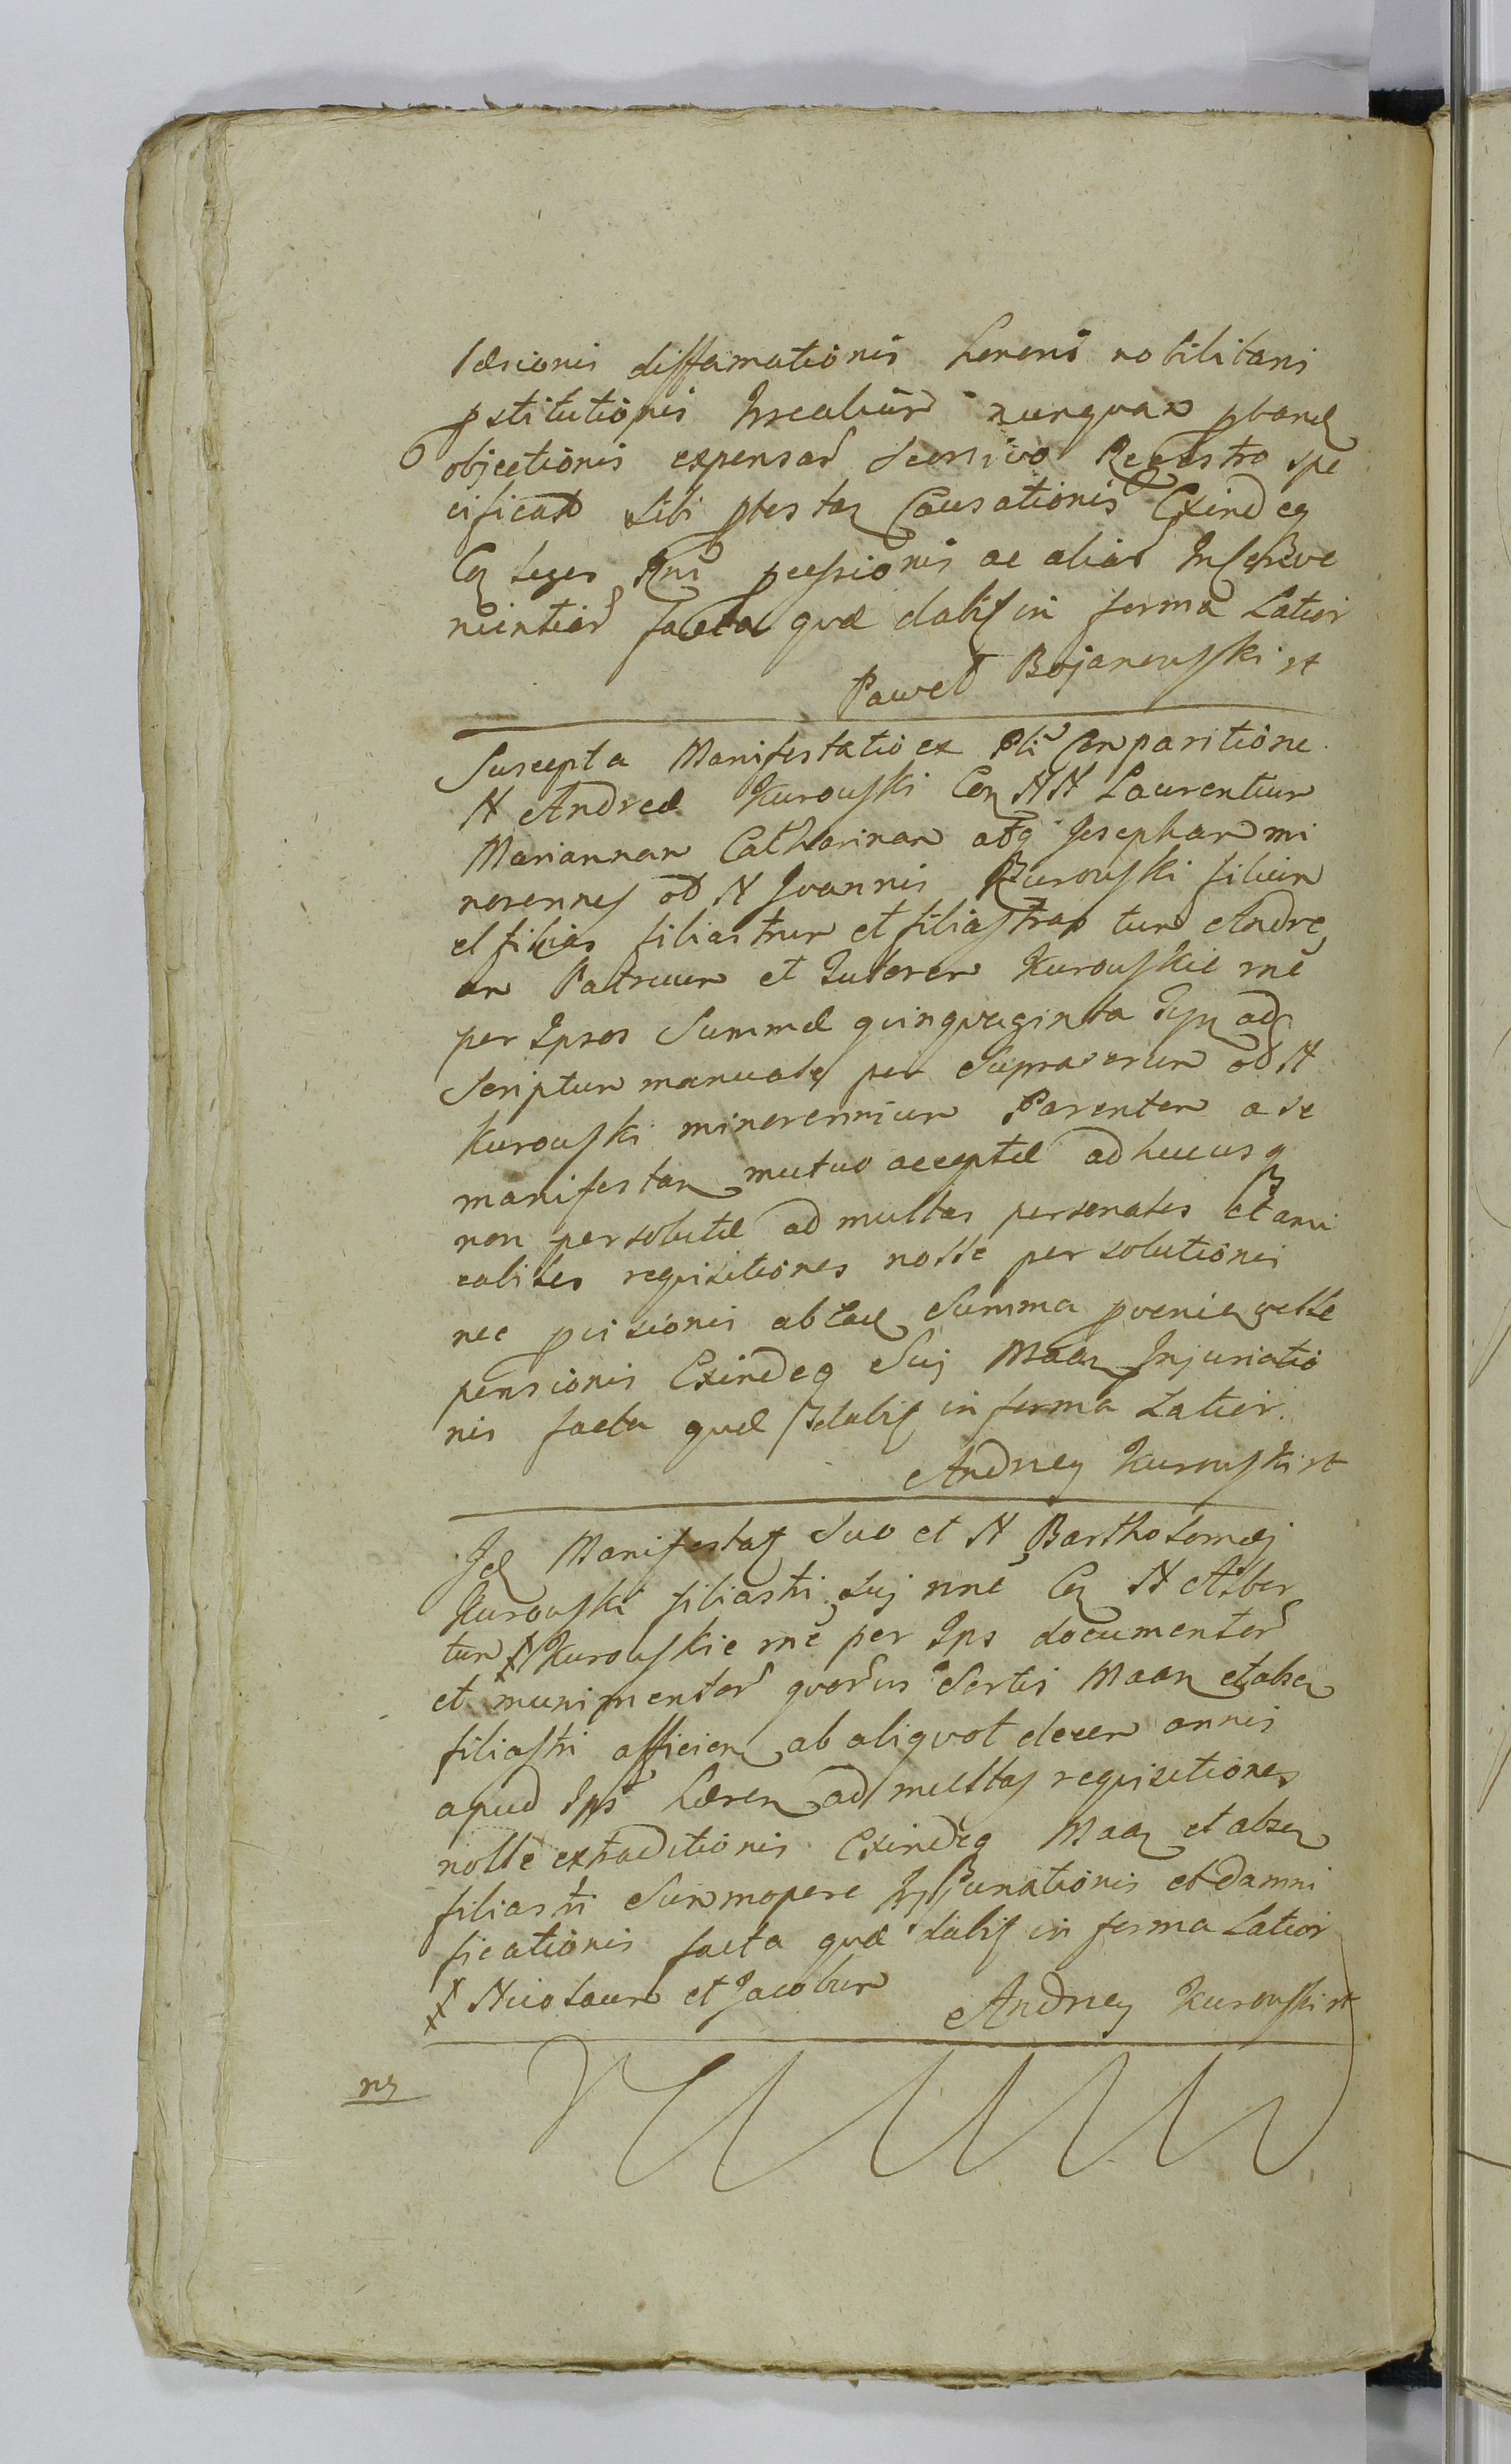 læsionis diffamationis honoris nobilitaris
pstitutionis nunquam pband
objectionis expensar seorsivo Regestro spe
cificat sibi ptestaz Causationis Exindeq
Cq leges Rni pcessionis ac aliar Inconve
nientiar facta quæ dabit in forma Latior
Paweł Bojanowski st
Suscepta Manifestatio ex Pli Comparitione
N Andreæ Kurowski Con NN Laurentium
Mariannam Catharinam atq Josepham mi
norennes od N Joannis Kurowski filium
et filias filiastrum et filiastras tum Andre
am Patruum et Tutorem Kurowskie rne
per Ipsos Summæ quinquaginta ad
Scriptum manuale per od N
Kurowski minorennium Parentem a se
manifestan mutuo acceptæ adhucusq
non persolutæ ad multas personales et ami
cabiles requisitiones nolle persolutionis
nec pvisionis ab eadem Summa pvenien velle
pensionis Exindeq Sui Maan Injuriatio
nis facta quæ dabit in forma Latior.
Andrzey Kurowski st
Id Manifestat Suo et N Bartholomæi
Kurowski filiastri sui nne Con N Alber
tum ⨍ Kurowskie rne per Ips documentor
et munimentor quorvis Sortis Maan et absen
filiastri afficien ab aliquot decem annis
apud Ips hæren ad multas requisitiones
nolle extraditionis Exindeq Maan et absen
filiastri Summopere Injurationis et damni
ficationis facta quæ dabit in forma Latior
⨍ Nicolaum et Jacobum Andrzey Kurowski st